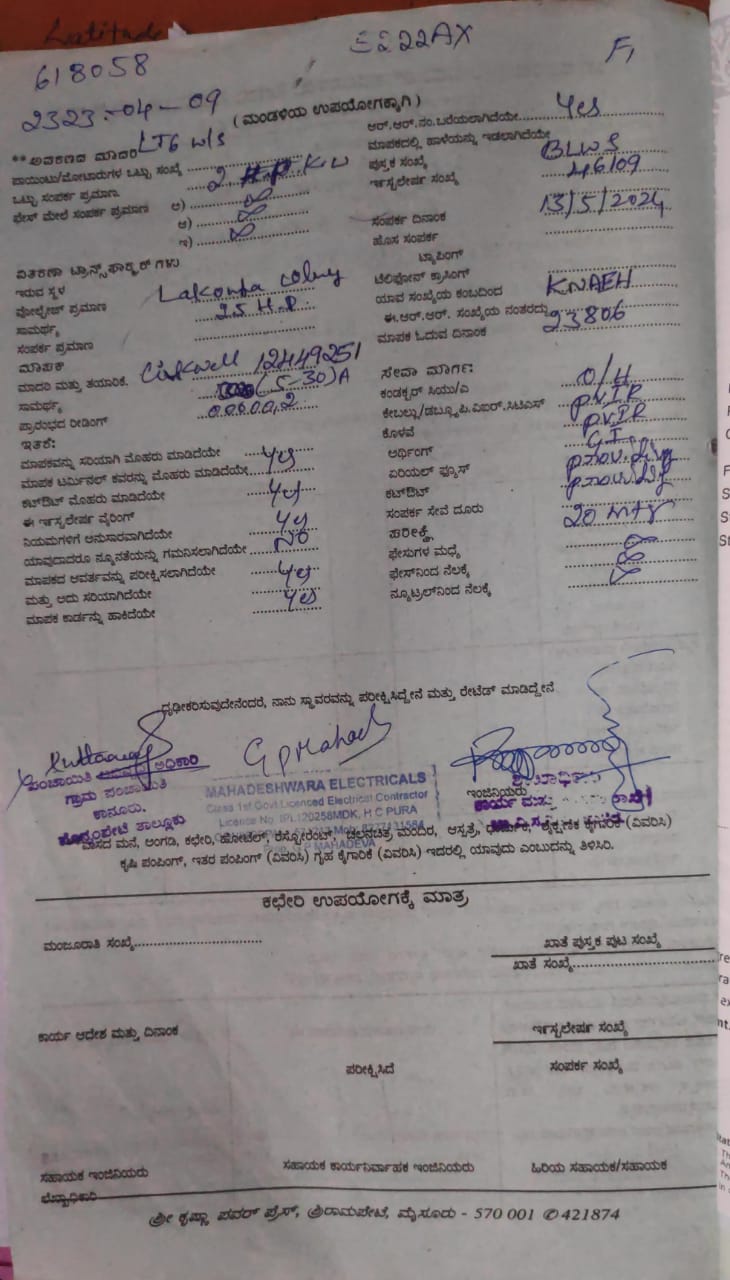 Latitude
618058
EE22AX
F1
2323-04-09
( ಮಂಡಳಿಯ ಉಪಯೋಗಕ್ಕಾಗಿ )
ಆರ್.ಆರ್.ನಂ.ಬರೆಯಲಾಗಿದೆಯೇ Yes
** ಆವರಣದ ಮಾದರಿ LT6 W/S
ಮಾಪಕದಲ್ಲಿ ಹಾಳೆಯನ್ನು ಇಡಲಾಗಿದೆಯೇ
ಪಾಯಿಂಟು/ಮೋಟಾರುಗಳ ಒಟ್ಟು ಸಂಖ್ಯೆ
ಪುಸ್ತಕ ಸಂಖ್ಯೆ BLWS
ಒಟ್ಟು ಸಂಪರ್ಕ ಪ್ರಮಾಣ 2 KW
ಇನ್ಸ್ಟಲೇಷನ ಸಂಖ್ಯೆ 46109
ಫೇಸ್ ಮೇಲೆ ಸಂಪರ್ಕ ಪ್ರಮಾಣ ಅ)
ಆ)
ಇ)
ಸಂಪರ್ಕ ದಿನಾಂಕ 13/5/2024
ಹೊಸ ಸಂಪರ್ಕ
ಟ್ಯಾಪಿಂಗ್
ವಿತರಣಾ ಟ್ರಾನ್ಸ್‌ಫಾರ್ಮರ್ ಗಳು
ಟೆಲಿಫೋನ್ ಕ್ರಾಸಿಂಗ್
ಇರುವ ಸ್ಥಳ Lakonta colony
ಯಾವ ಸಂಖ್ಯೆಯ ಕಂಬದಿಂದ KNAEH
ವೋಲ್ಟೇಜ್ ಪ್ರಮಾಣ 25 H.P.
ಈ.ಆರ್.ಆರ್. ಸಂಖ್ಯೆಯ ನಂತರದ್ದು 23806
ಸಾಮರ್ಥ್ಯ
ಮಾಪಕ ಓದುವ ದಿನಾಂಕ
ಸಂಪರ್ಕ ಪ್ರಮಾಣ
ಮಾಪಕ
ಸೇವಾ ಮಾರ್ಗ:
ಮಾದರಿ ಮತ್ತು ತಯಾರಿಕೆ. 12449251
ಕಂಡಕ್ಟರ್ ಸಿಯು/ಎ O/H
ಸಾಮರ್ಥ್ಯ (5-30)A
ಕೇಬಲ್ಲು/ಡಬ್ಲ್ಯೂಪಿ.ಐಆರ್.ಸಿಟಿಎಸ್ P.V.I.R
ಪ್ರಾರಂಭದ ರೀಡಿಂಗ್ 00600,2
ಕೊಳವೆ P.V.I.R
ಇತರೆ:
ಅರ್ಥಿಂಗ್ G.I.
ಮಾಪಕವನ್ನು ಸರಿಯಾಗಿ ಮೊಹರು ಮಾಡಿದೆಯೇ Yes
ಏರಿಯಲ್ ಫ್ಯೂಸ್
ಮಾಪಕ ಟರ್ಮಿನಲ್ ಕವರನ್ನು ಮೊಹರು ಮಾಡಿದೆಯೇ
ಕಟ್‌ಔಟ್
ಕಟ್‌ಔಟ್ ಮೊಹರು ಮಾಡಿದೆಯೇ Yes
ಸಂಪರ್ಕ ಸೇವೆ ದೂರು 20 mtr
ಈ ಇನ್ಸ್ಟಲೇಷನ ವೈರಿಂಗ್
ಪರೀಕ್ಷೆ
ನಿಯಮಗಳಿಗೆ ಅನುಸಾರವಾಗಿದೆಯೇ Yes
ಫೇಸುಗಳ ಮಧ್ಯೆ
ಯಾವುದಾದರೂ ನ್ಯೂನತೆಯನ್ನು ಗಮನಿಸಲಾಗಿದೆಯೇ NO
ಫೇಸ್‌ನಿಂದ ನೆಲಕ್ಕೆ
ಮಾಪಕದ ಆವರ್ತವನ್ನು ಪರೀಕ್ಷಿಸಲಾಗಿದೆಯೇ
ನ್ಯೂಟ್ರಲ್‌ನಿಂದ ನೆಲಕ್ಕೆ
ಮತ್ತು ಅದು ಸರಿಯಾಗಿದೆಯೇ Yes
ಮಾಪಕ ಕಾರ್ಡನ್ನು ಹಾಕಿದೆಯೇ Yes
ದೃಢೀಕರಿಸುವುದೇನೆಂದರೆ, ನಾನು ಸ್ಥಾವರವನ್ನು ಪರೀಕ್ಷಿಸಿದ್ದೇನೆ ಮತ್ತು ರೇಟೆಡ್ ಮಾಡಿದ್ದೇನೆ
G P Mahade
ಪಂಚಾಯಿತಿ ಅಧಿಕಾರಿ
ಗ್ರಾಮ ಪಂಚಾಯಿತಿ
ಕಾನೂರು.
ಪೊನ್ನಂಪೇಟೆ ತಾಲ್ಲೂಕು
MAHADESHWARA ELECTRICALS
Class 1st Govt Licenced Electrical Contractor
Licence No. IPL120258MDK, H C PURA
G P MAHADEVA
ಇಂಜಿನಿಯರು
ವಾಸದ ಮನೆ, ಅಂಗಡಿ, ಕಛೇರಿ, ಹೋಟೆಲ್, ರೆಸ್ಟೋರೆಂಟ್, ಚಲನಚಿತ್ರ ಮಂದಿರ, ಆಸ್ಪತ್ರೆ, ಧಾರ್ಮಿಕ, ಶೈಕ್ಷಣಿಕ ಕೈಗಾರಿಕೆ (ವಿವರಿಸಿ)
ಕೃಷಿ ಪಂಪಿಂಗ್, ಇತರ ಪಂಪಿಂಗ್ (ವಿವರಿಸಿ) ಗೃಹ ಕೈಗಾರಿಕೆ (ವಿವರಿಸಿ) ಇದರಲ್ಲಿ ಯಾವುದು ಎಂಬುದನ್ನು ತಿಳಿಸಿರಿ.
ಕಛೇರಿ ಉಪಯೋಗಕ್ಕೆ ಮಾತ್ರ
ಮಂಜೂರಾತಿ ಸಂಖ್ಯೆ
ಖಾತೆ ಪುಸ್ತಕ ಪುಟ ಸಂಖ್ಯೆ
ಖಾತೆ ಸಂಖ್ಯೆ
ಕಾರ್ಯ ಆದೇಶ ಮತ್ತು ದಿನಾಂಕ
ಇನ್ಸ್ಟಲೇಷನ ಸಂಖ್ಯೆ
ಪರೀಕ್ಷಿಸಿದೆ
ಸಂಪರ್ಕ ಸಂಖ್ಯೆ
ಸಹಾಯಕ ಇಂಜಿನಿಯರು
ಸಹಾಯಕ ಕಾರ್ಯನಿರ್ವಾಹಕ ಇಂಜಿನಿಯರು
ಹಿರಿಯ ಸಹಾಯಕ/ಸಹಾಯಕ
ಲೆಖ್ಖಾಧಿಕಾರಿ
ಶ್ರೀ ಕೃಷ್ಣಾ ಪವರ್ ಪ್ರೆಸ್, ಶ್ರೀರಾಮಪೇಟೆ, ಮೈಸೂರು - 570 001 ✆ 421874